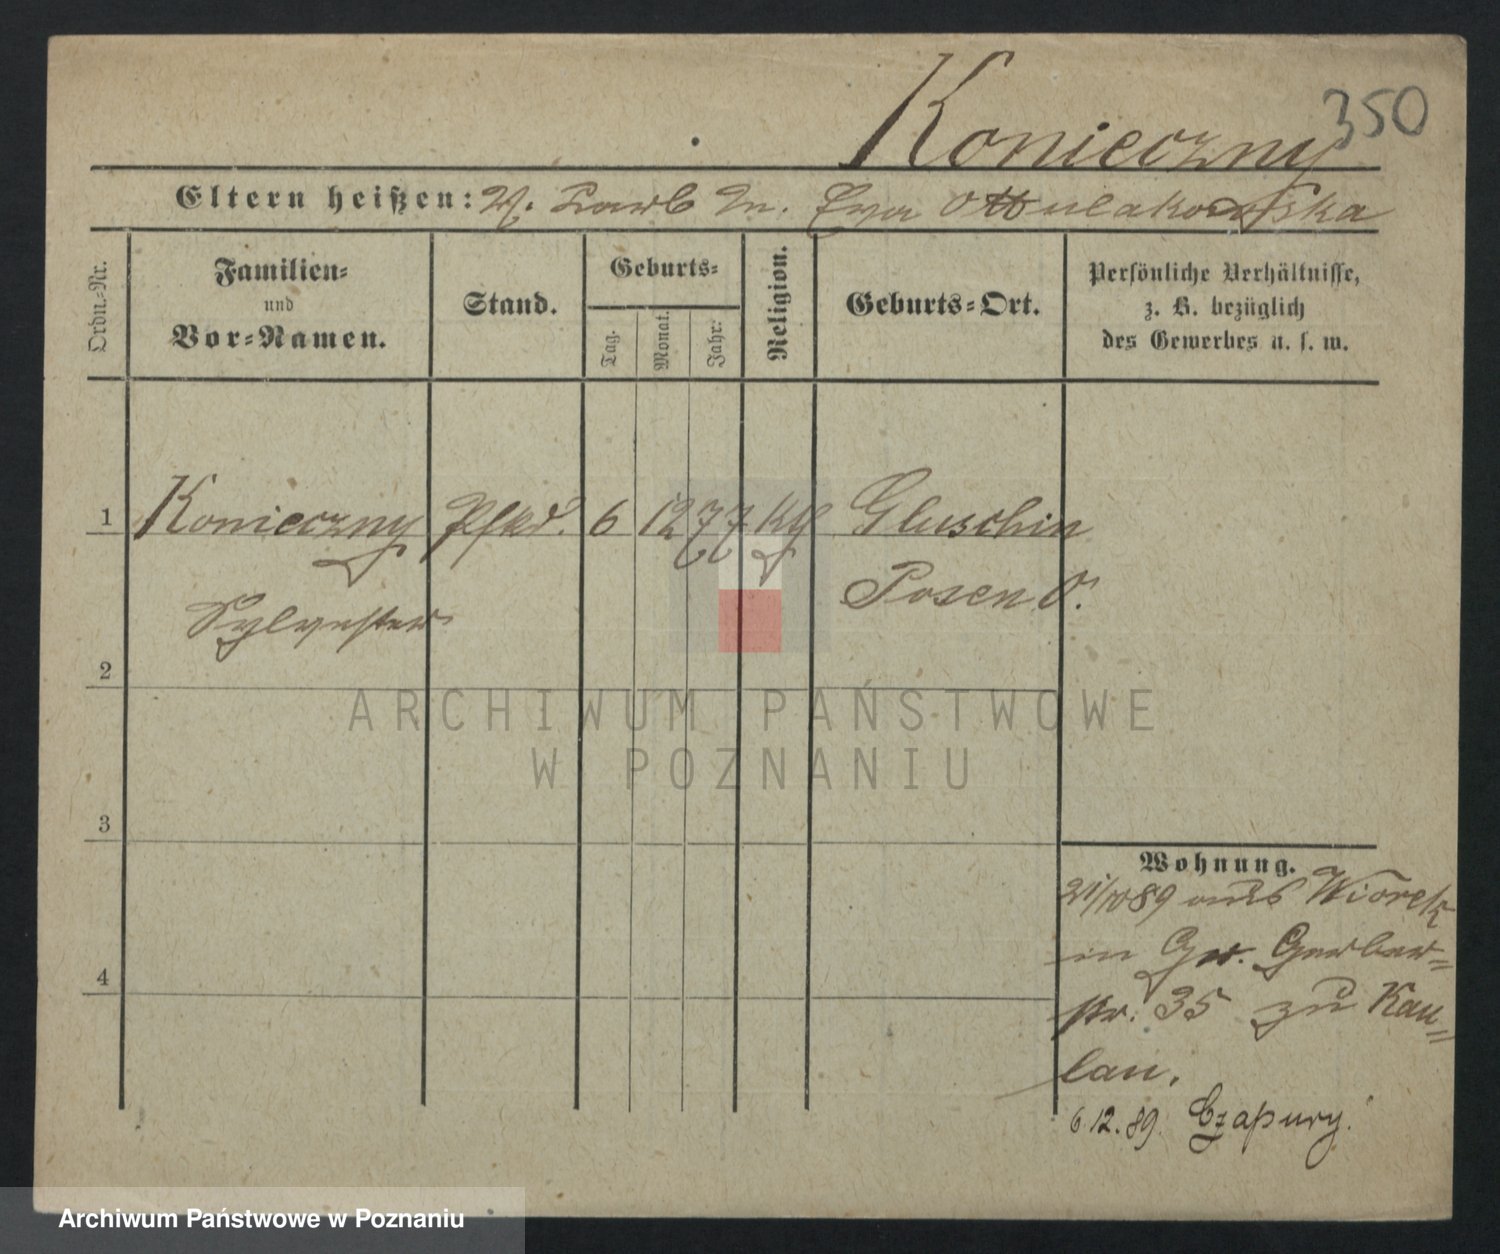 350
Konieczny
Eltern heißen: V. Karl M. Eva Ottulakowska
Ordn.-Nr.
Familien-
und
Vor-Namen.
Stand.
Geburts-
Tag.
Monat.
Jahr.
Religion.
Geburts-Ort.
Persönliche Verhältnisse,
z. B. bezüglich
des Gewerbes u. s. w.
1
Konieczny 6 12 77 Gluschin
Sylvester Posen O.
2
3
4
Wohnung.
21/10 89 aus Wiorek
in Gr. Gerber-
str. 35 zu
6.12.89. Czapury.
ARCHIWUM PAŃSTWOWE
W POZNANIU
Archiwum Państwowe w Poznaniu